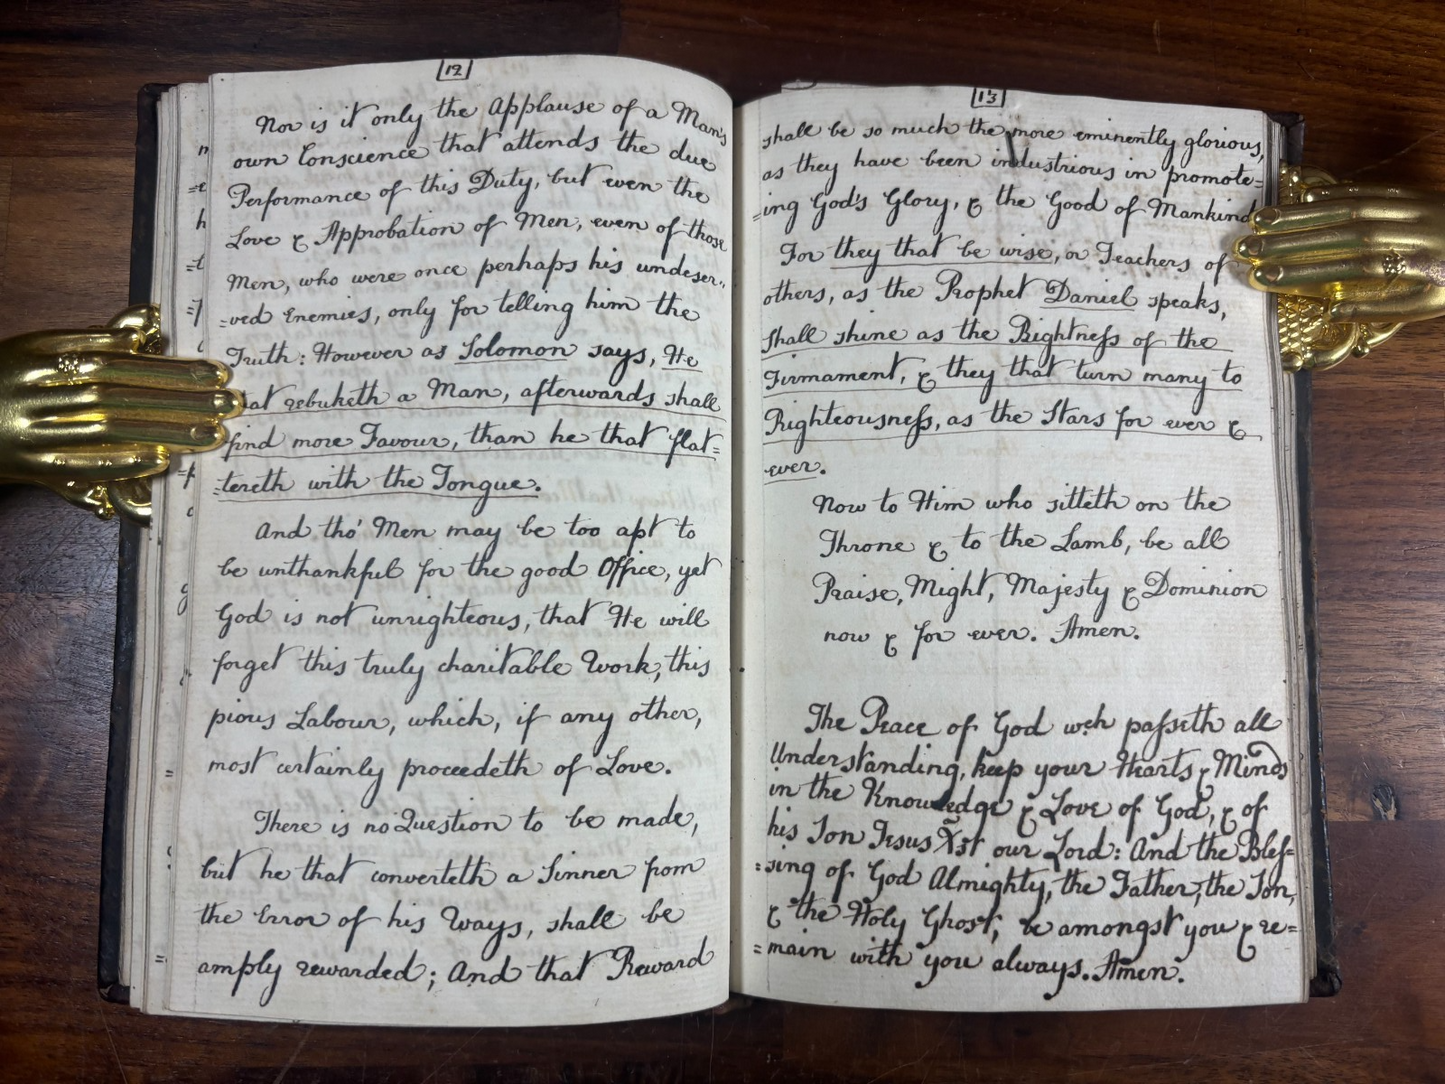 12
Nor is it only the Applause of a Man's
own Conscience that attends the due
Performance of this Duty, but even the
Love & Approbation of Men, even of those
Men, who were once perhaps his undeser=
=ved Enemies, only for telling him the
Truth: However as Solomon says, He
at rebuketh a Man, afterwards shall
find more Favour, than he that flat=
=tereth with the Tongue.
And tho' Men may be too apt to
be unthankful for the good Office, yet
God is not unrighteous, that He will
forget this truly charitable Work, this
pious Labour, which, if any other,
most certainly proceedeth of Love.
There is no Question to be made,
but he that converteth a Sinner from
the Error of his Ways, shall be
amply rewarded; And that Reward
13
shall be so much the more eminently glorious,
as they have been industrious in promote=
=ing God's Glory, & the Good of Mankind
For they that be wise, or Teachers of
others, as the Prophet Daniel speaks,
shall shine as the Brightness of the
Firmament, & they that turn many to
Righteousness, as the Stars for ever &
ever.
Now to Him who sitteth on the
Throne & to the Lamb, be all
Praise, Might, Majesty & Dominion
now & for ever. Amen.
The Peace of God wch passeth all
Understanding, keep your Hearts & Minds
in the Knowledge & Love of God, & of
his Son Jesus Xst our Lord: And the Bles=
=sing of God Almighty, the Father, the Son,
& the Holy Ghost, be amongst you & re=
=main with you always. Amen.